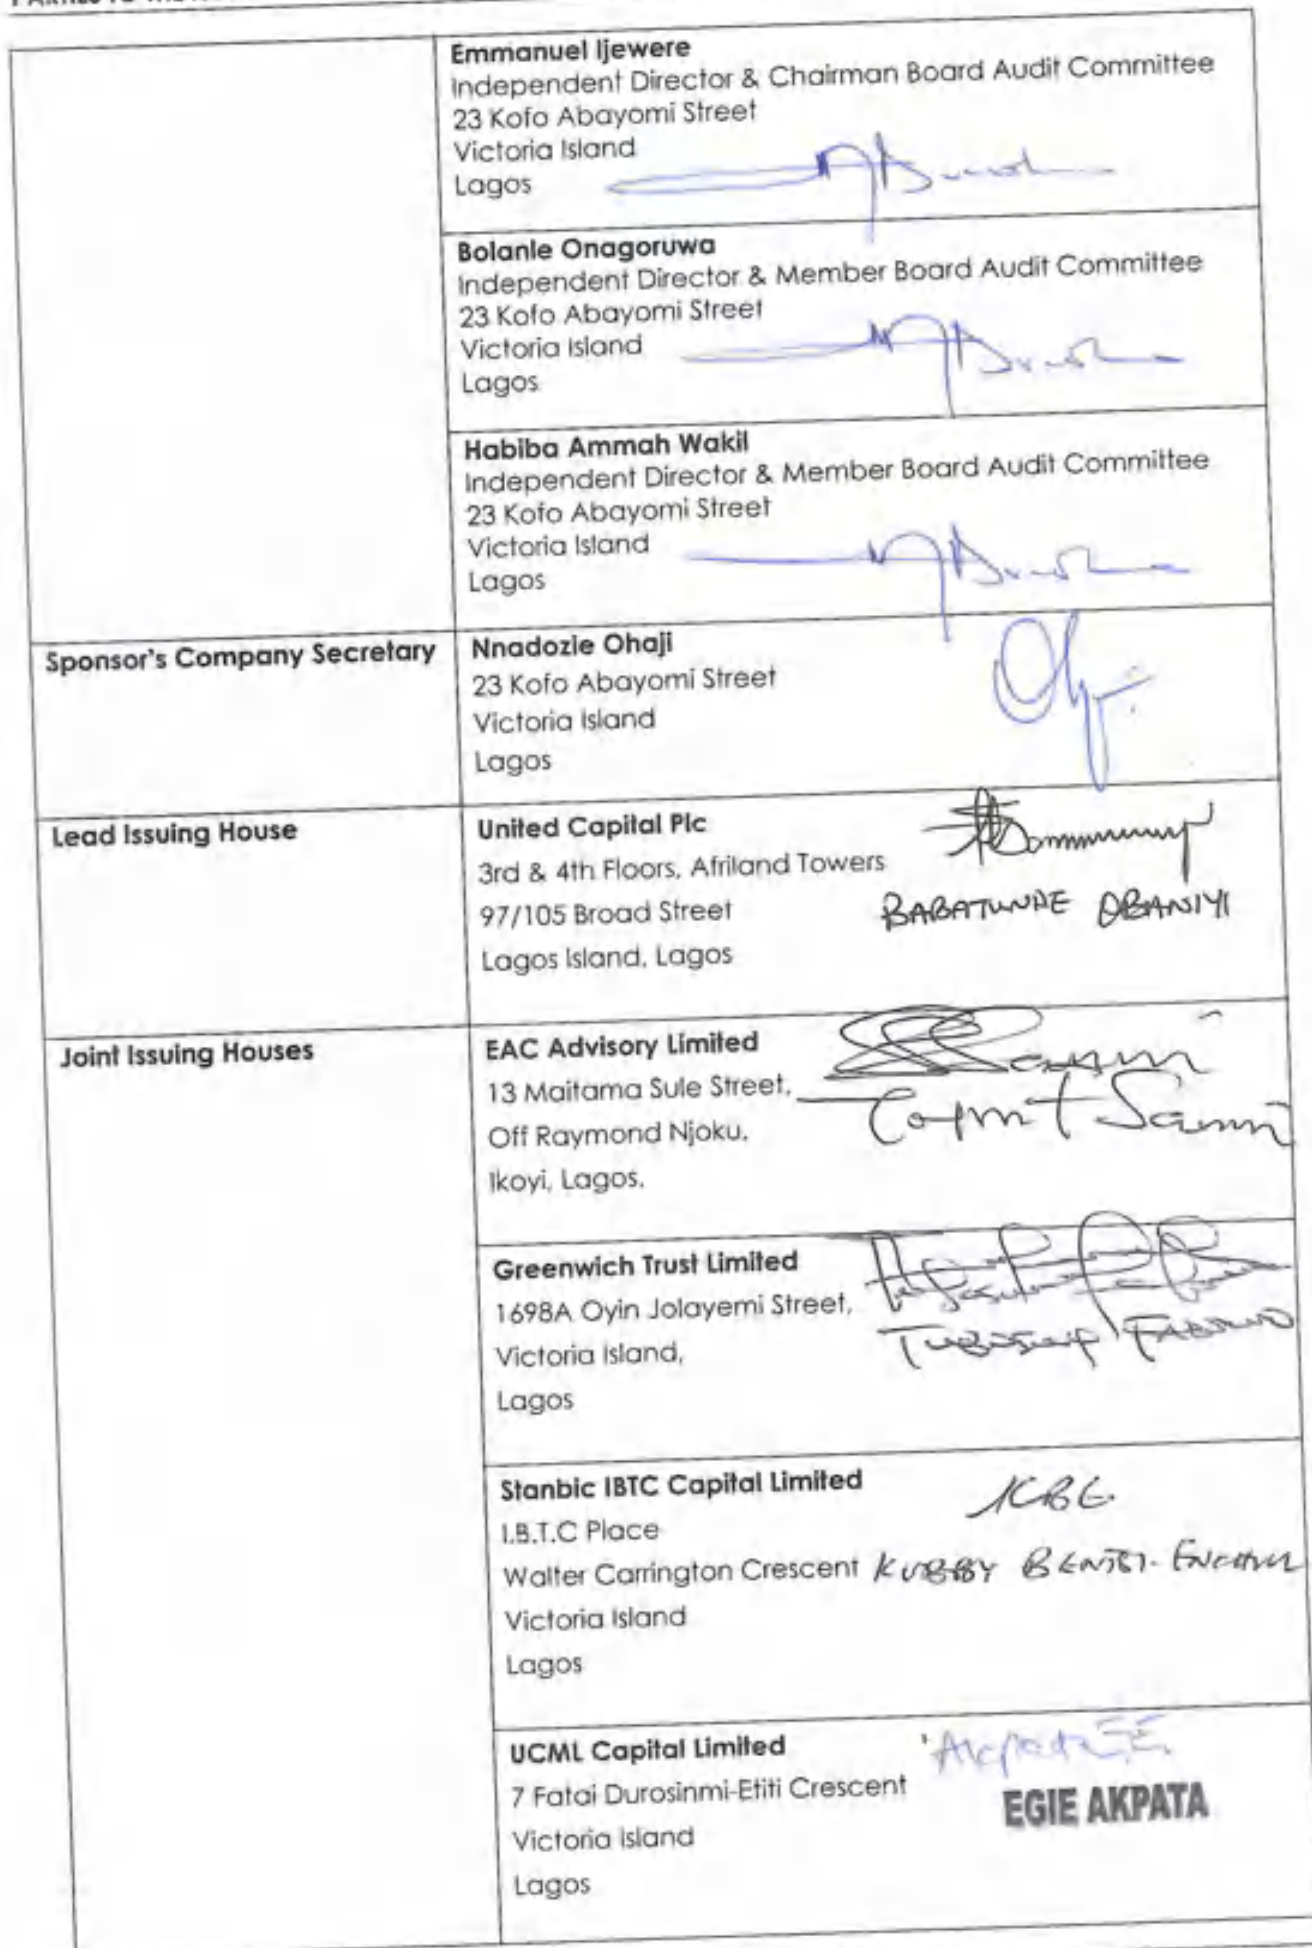 Emmanuel Ijewere
Independent Director & Chairman Board Audit Committee
23 Kofo Abayomi Street
Victoria Island
Lagos
Bolanle Onagoruwa
Independent Director & Member Board Audit Committee
23 Kofo Abayomi Street
Victoria Island
Lagos
Habiba Ammah Wakil
Independent Director & Member Board Audit Committee
23 Kofo Abayomi Street
Victoria Island
Lagos
Sponsor's Company Secretary
Nnadozie Ohaji
23 Kofo Abayomi Street
Victoria Island
Lagos
Lead Issuing House
United Capital Plc
3rd & 4th Floors, Afriland Towers
97/105 Broad Street
BABATUNDE OBANIYI
Lagos Island, Lagos
Joint Issuing Houses
EAC Advisory Limited
13 Maitama Sule Street,
Off Raymond Njoku,
Ikoyi, Lagos.
Greenwich Trust Limited
1698A Oyin Jolayemi Street,
Victoria Island,
Lagos
Stanbic IBTC Capital Limited
I.B.T.C Place
Walter Carrington Crescent KUBBY
Victoria Island
Lagos
UCML Capital Limited
7 Fatai Durosinmi-Etiti Crescent
EGIE AKPATA
Victoria Island
Lagos